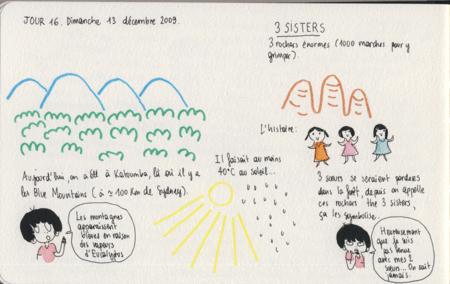 JOUR 16. Dimanche 13 décembre 2009.
Aujourd'hui, on a été à Katoomba, là où il y a
les Blue Mountains (à ≈ 100 Km de Sydney).
Les montagnes
apparaissent
bleues en raison
des vapeurs
d'Eucalyptus
Il faisait au moins
40°C au soleil...
3 SISTERS
3 rochers énormes (1000 marches pour y
grimper).
L'histoire:
3 sœurs se seraient perdues
dans la forêt, depuis on appelle
ces rochers the 3 sisters,
ça les symbolise.
Heureusement
que je suis
pas venue
avec mes 2
sœurs... On sait
jamais.